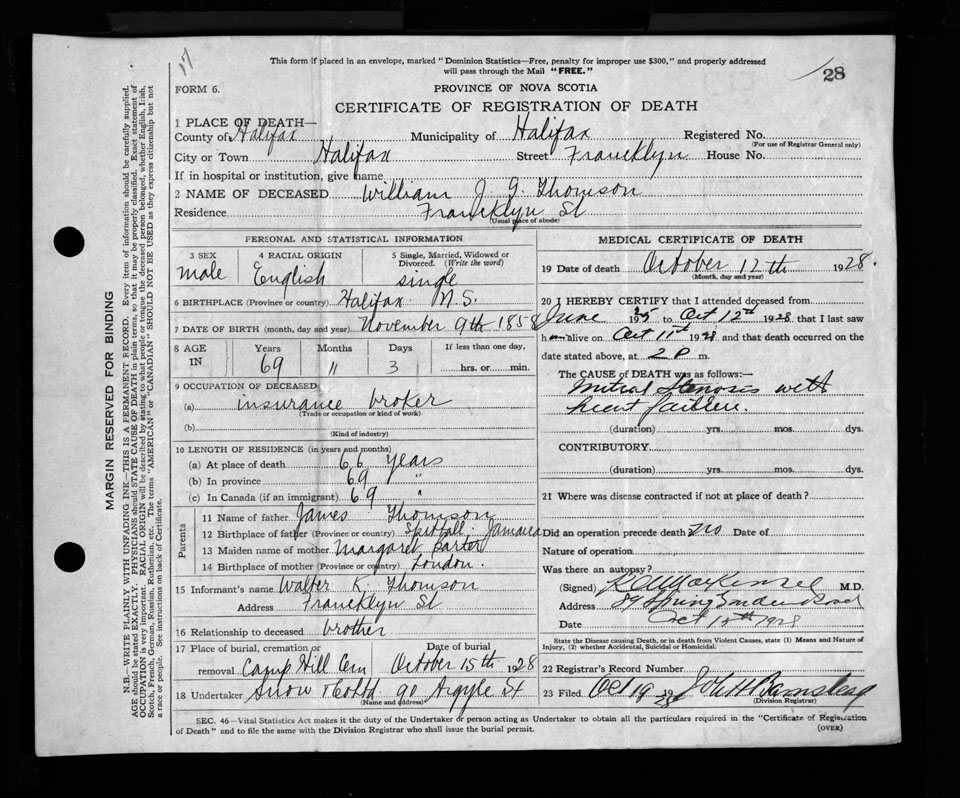 17
28
This form if placed in an envelope, marked "Dominion Statistics—Free, penalty for improper use $300," and properly addressed
will pass through the Mail "FREE."
FORM 6.
PROVINCE OF NOVA SCOTIA
CERTIFICATE OF REGISTRATION OF DEATH
1 PLACE OF DEATH—
County of Halifax Municipality of Halifax Registered No.
(For use of Registrar General only)
City or Town Halifax Street Francklyn House No.
If in hospital or institution, give name
2 NAME OF DECEASED William J. G. Thomson
Residence Francklyn St
(Usual place of abode)
PERSONAL AND STATISTICAL INFORMATION
3 SEX male
4 RACIAL ORIGIN English
5 Single, Married, Widowed or Divorced. (Write the word) single
6 BIRTHPLACE (Province or country) Halifax N.S.
7 DATE OF BIRTH (month, day and year) November 9th 1858
8 AGE IN Years 69 Months " Days 3 If less than one day, hrs. or min.
9 OCCUPATION OF DECEASED
(a) insurance broker
(Trade or occupation or kind of work)
(b)
(Kind of industry)
10 LENGTH OF RESIDENCE (in years and months)
(a) At place of death 66 years
(b) In province 69 "
(c) In Canada (if an immigrant) 69 "
Parents
11 Name of father James Thomson
12 Birthplace of father (Province or country) Jamaica
13 Maiden name of mother Margaret Barter
14 Birthplace of mother (Province or country) London.
15 Informant's name Walter K. Thomson
Address Francklyn St
16 Relationship to deceased brother
17 Place of burial, cremation or removal Camp Hill Cem Date of burial October 15th 1928
18 Undertaker Snow & Co Ltd. 90 Argyle St
(Name and address)
MEDICAL CERTIFICATE OF DEATH
19 Date of death October 12th 1928.
(Month, day and year)
20 I HEREBY CERTIFY that I attended deceased from
June 19 to Oct 12th 1928 that I last saw
h alive on Oct 11th 1928 and that death occurred on the
date stated above, at 2 P m.
The CAUSE of DEATH was as follows:—
Mitral Stenosis with
heart failure.
(duration) yrs. mos. dys.
CONTRIBUTORY
(duration) yrs. mos. dys.
21 Where was disease contracted if not at place of death?
Did an operation precede death? no Date of
Nature of operation
Was there an autopsy?
(Signed) MacKenzie M.D.
Address 89 Spring Garden Road
Date Oct 15th 1928
State the Disease causing Death, or in death from Violent Causes, state (1) Means and Nature of
Injury, (2) whether Accidental, Suicidal or Homicidal.
22 Registrar's Record Number
23 Filed Oct 19 1928 John H Barnstead
(Division Registrar)
SEC. 46—Vital Statistics Act makes it the duty of the Undertaker or person acting as Undertaker to obtain all the particulars required in the "Certificate of Registration
of Death" and to file the same with the Division Registrar who shall issue the burial permit.
(OVER)
MARGIN RESERVED FOR BINDING
N.B.—WRITE PLAINLY, WITH UNFADING INK—THIS IS A PERMANENT RECORD. Every item of information should be carefully supplied.
AGE should be stated EXACTLY. PHYSICIANS should STATE CAUSE OF DEATH in plain terms, so that it may be properly classified. Exact statement of
OCCUPATION is very important. RACIAL ORIGIN will be described by stating to what people or tongue the deceased person belonged, whether English, Irish,
Scotch, French, German, Russian, Ruthenian, etc. The terms "AMERICAN" or "CANADIAN" SHOULD NOT BE USED as they express citizenship but not
a race or people. See instructions on back of Certificate.